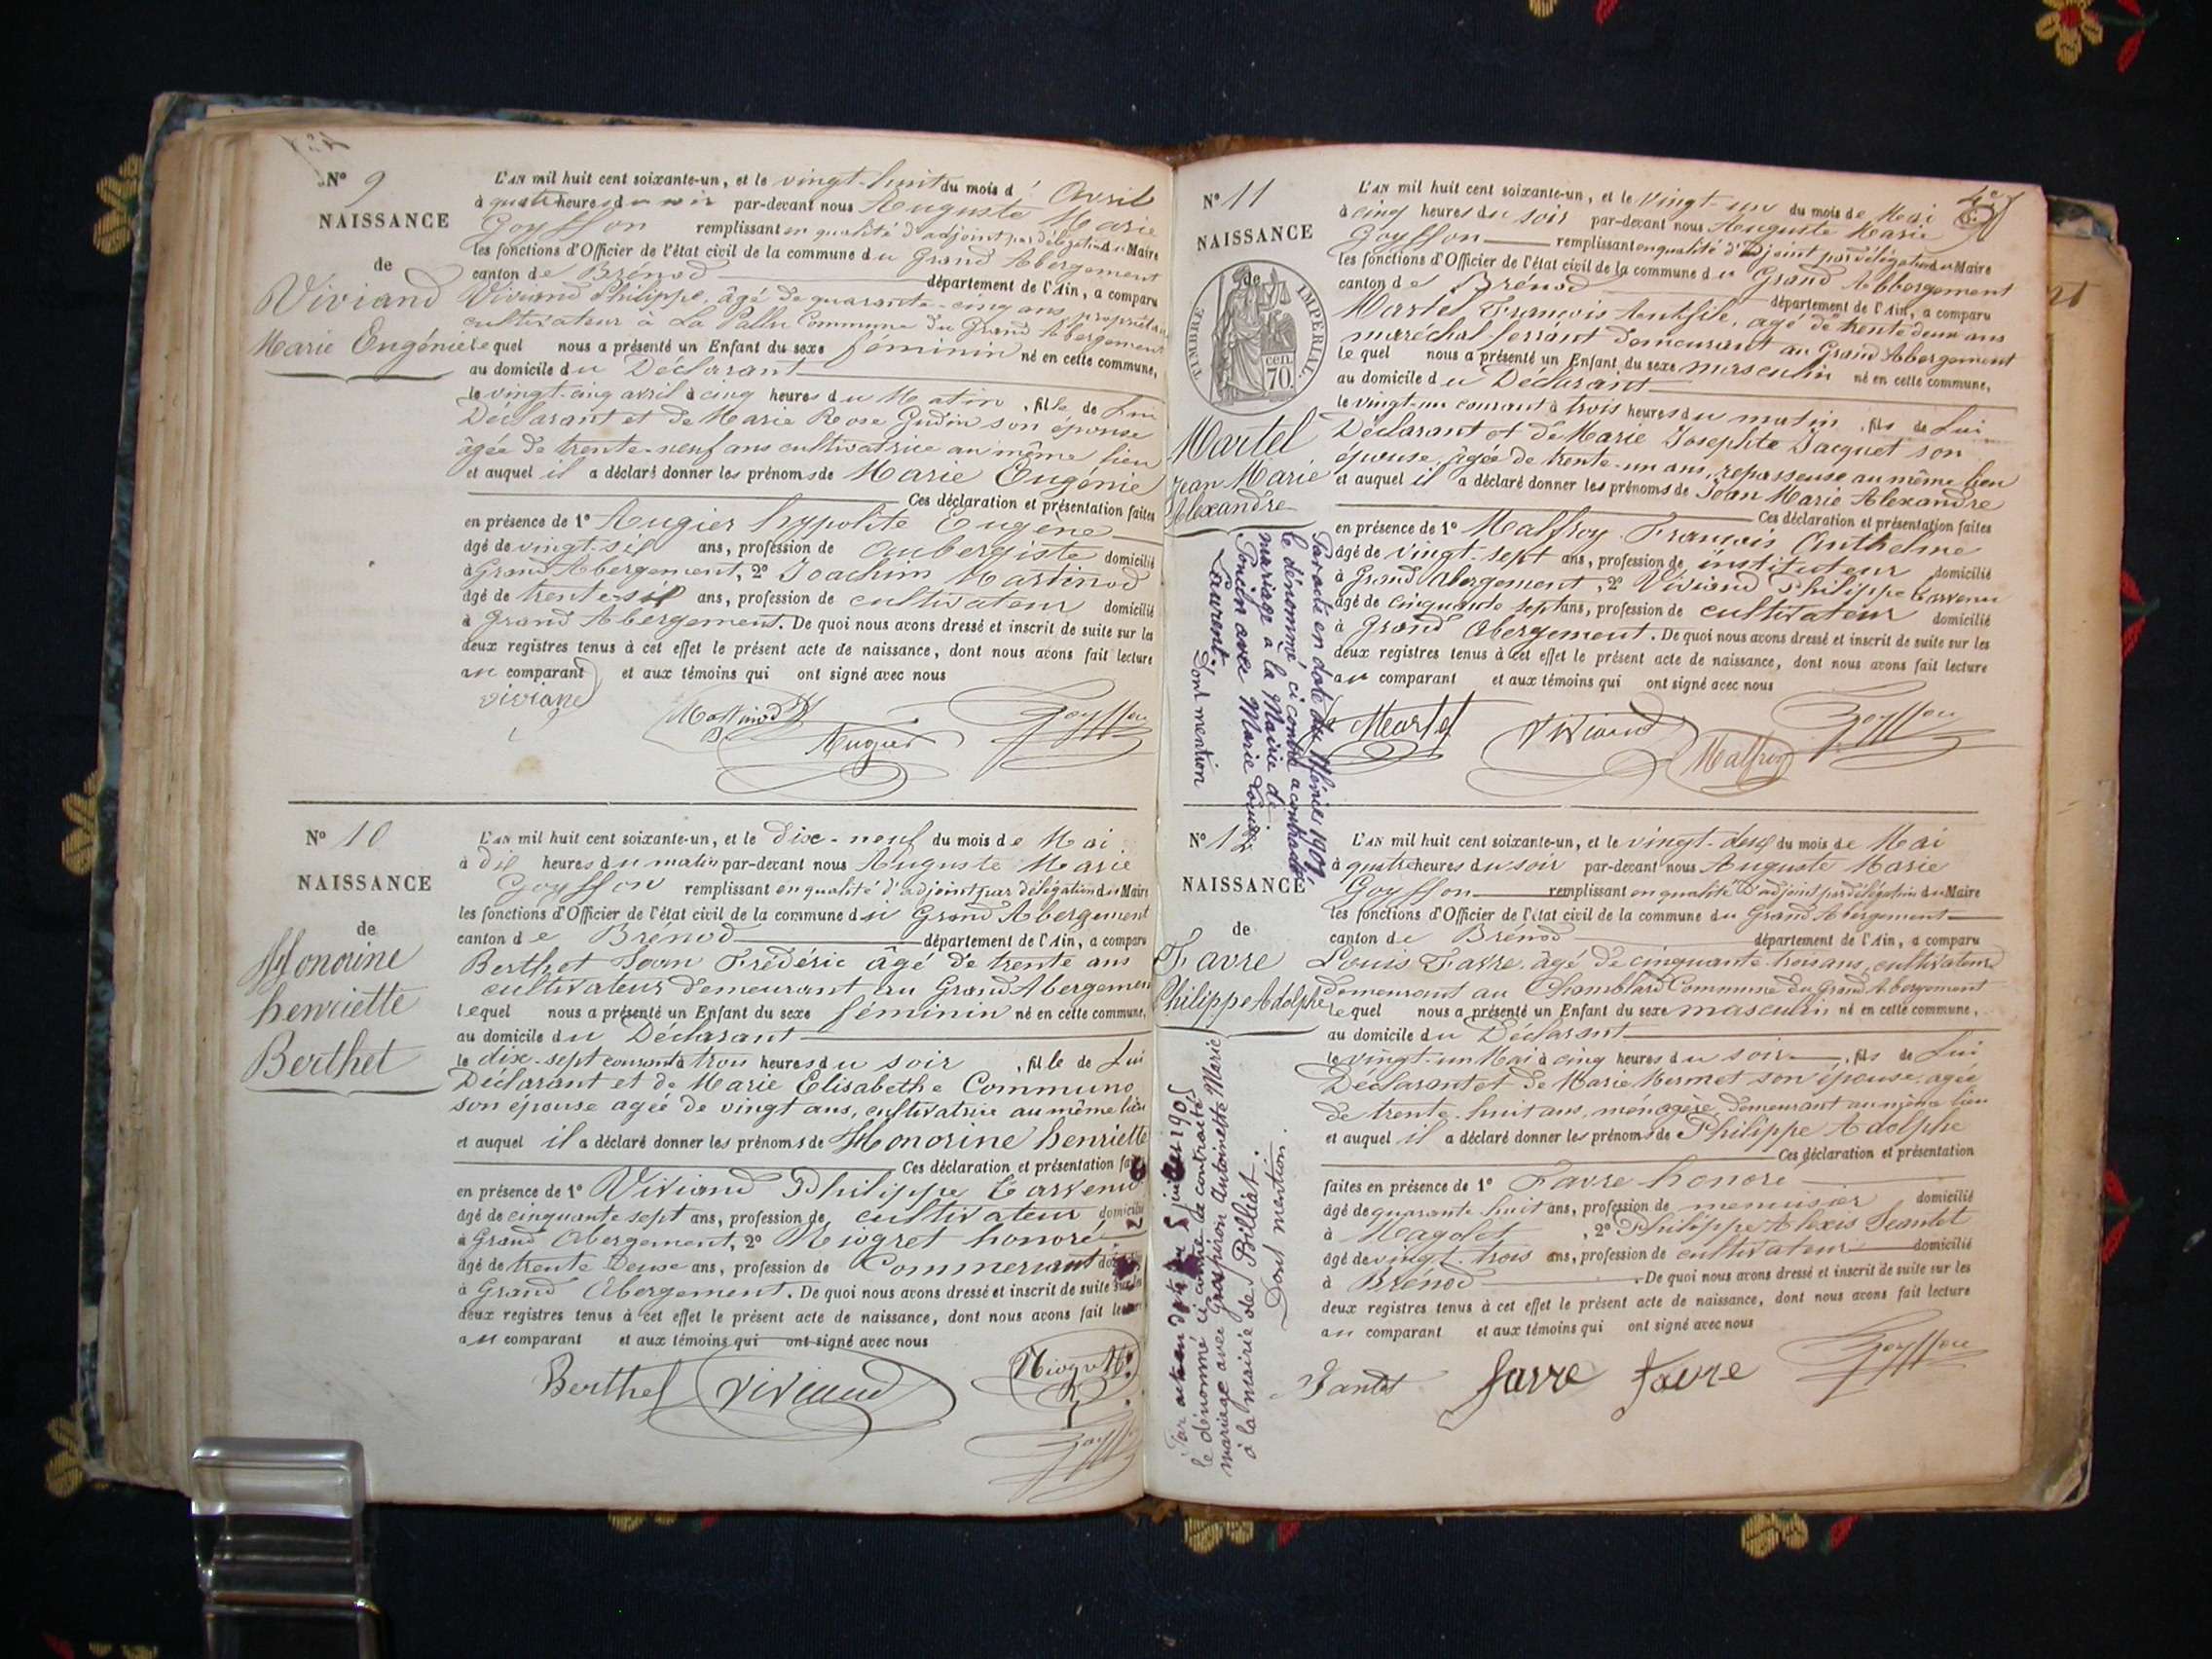 N° 9
NAISSANCE
de
Viviand
Marie Eugénie
L'AN mil huit cent soixante-un, et le vingt-huit du mois d' Avril
à quatre heures du soir par-devant nous Auguste Marie
Goyffon remplissant en qualité d'adjoint par délégation du Maire
les fonctions d'Officier de l'état civil de la commune du Grand Abergement
canton de Brénod département de l'Ain, a comparu
Viviand Philippe, âgé de quarante-cinq ans, propriétaire
cultivateur à La Pallu Commune du Grand Abergement
lequel nous a présenté un Enfant du sexe féminin né en cette commune,
au domicile du Déclarant
le vingt-cinq avril à cinq heures du Matin, fille de Lui
Déclarant et de Marie Rose Gudin son épouse
âgée de trente-neuf ans cultivatrice au même lieu
et auquel il a déclaré donner les prénoms de Marie Eugénie
Ces déclaration et présentation faites
en présence de 1° Augier hypolite Eugène
âgé de vingt-six ans, profession de Aubergiste domicilié
à Grand Abergement, 2° Joachim Martinod
âgé de trente-six ans, profession de cultivateur domicilié
à Grand Abergement. De quoi nous avons dressé et inscrit de suite sur les
deux registres tenus à cet effet le présent acte de naissance, dont nous avons fait lecture
au comparant et aux témoins qui ont signé avec nous
viviand
Martinod
Augier
Goyffon
N° 10
NAISSANCE
de
Honorine
henriette
Berthet
L'AN mil huit cent soixante-un, et le Dix-neuf du mois de Mai
à dix heures du matin par-devant nous Auguste Marie
Goyffon remplissant en qualité d'adjoint par délégation du Maire
les fonctions d'Officier de l'état civil de la commune du Grand Abergement
canton de Brénod département de l'Ain, a comparu
Berthet Jean Frédéric âgé de trente ans
cultivateur demeurant au Grand Abergement
lequel nous a présenté un Enfant du sexe féminin né en cette commune,
au domicile du Déclarant
le dix-sept courant à trois heures du soir, fille de Lui
Déclarant et de Marie Elisabethe Communo
son épouse agée de vingt ans, cultivatrice au même lieu
et auquel il a déclaré donner les prénoms de Honorine henriette
Ces déclaration et présentation faites
en présence de 1° Viviand Philippe
âgé de cinquante sept ans, profession de cultivateur domicilié
à Grand Abergement, 2° Niogret honoré
âgé de trente deux ans, profession de Commerçant
à Grand Abergement. De quoi nous avons dressé et inscrit de suite sur les
deux registres tenus à cet effet le présent acte de naissance, dont nous avons fait lecture
au comparant et aux témoins qui ont signé avec nous
Berthet
viviand
Niogret H.
Goyffon
N° 11
NAISSANCE
de
TIMBRE IMPERIAL
70 cen.
Martel
Jean Marie
Alexandre
L'AN mil huit cent soixante-un, et le vingt-un du mois de Mai
à cinq heures du soir par-devant nous Auguste Marie
Goyffon remplissant en qualité d'Adjoint par délégation du Maire
les fonctions d'Officier de l'état civil de la commune du Grand Abbergement
canton de Brénod département de l'Ain, a comparu
Martel François, agé de trente deux ans
maréchal ferrant demeurant au Grand Abergement
lequel nous a présenté un Enfant du sexe masculin né en cette commune,
au domicile du Déclarant
le vingt-un courant à trois heures du matin, fils de Lui
Déclarant et de Marie Josephte Jacquet son
épouse, âgée de trente-un ans, repasseuse au même lieu
et auquel il a déclaré donner les prénoms de Jean Marie Alexandre
Ces déclaration et présentation faites
en présence de 1° Malfroy François Anthelme
âgé de vingt-sept ans, profession de instituteur domicilié
à Grand Abergement, 2° Viviand Philippe
âgé de cinquante sept ans, profession de cultivateur domicilié
à Grand Abergement. De quoi nous avons dressé et inscrit de suite sur les
deux registres tenus à cet effet le présent acte de naissance, dont nous avons fait lecture
au comparant et aux témoins qui ont signé avec nous
Martel
viviand
Malfroy
Goyffon
Par acte en date du février 1901,
le dénommé ci contre a contracté
mariage à la Mairie de
Poncin avec Marie Louise
Laurent. Dont mention
N° 12
NAISSANCE
de
Favre
Philippe Adolphe
L'AN mil huit cent soixante-un, et le vingt-deux du mois de Mai
à quatre heures du soir par-devant nous Auguste Marie
Goyffon remplissant en qualité d'adjoint par délégation du Maire
les fonctions d'Officier de l'état civil de la commune du Grand Abergement
canton de Brénod département de l'Ain, a comparu
Louis Favre, âgé de cinquante-trois ans, cultivateur
demeurant au Chamblard Commune du Grand Abergement
lequel nous a présenté un Enfant du sexe masculin né en cette commune,
au domicile du Déclarant
le vingt-un Mai à cinq heures du soir, fils de Lui
Déclarant et de Marie Mermet son épouse, agée
de trente-huit ans, ménagère, demeurant au même lieu
et auquel il a déclaré donner les prénoms de Philippe Adolphe
Ces déclaration et présentation
faites en présence de 1° Favre honoré
âgé de quarante huit ans, profession de menuisier domicilié
à, 2° Philippe Alexis
âgé de vingt-trois ans, profession de cultivateur domicilié
à Brénod. De quoi nous avons dressé et inscrit de suite sur les
deux registres tenus à cet effet le présent acte de naissance, dont nous avons fait lecture
au comparant et aux témoins qui ont signé avec nous
favre
favre
Goyffon
Par acte en date du 5
le dénommé ci contre a contracté
mariage avec Antoinette Marie
à la mairie de Billiat.
Dont mention.